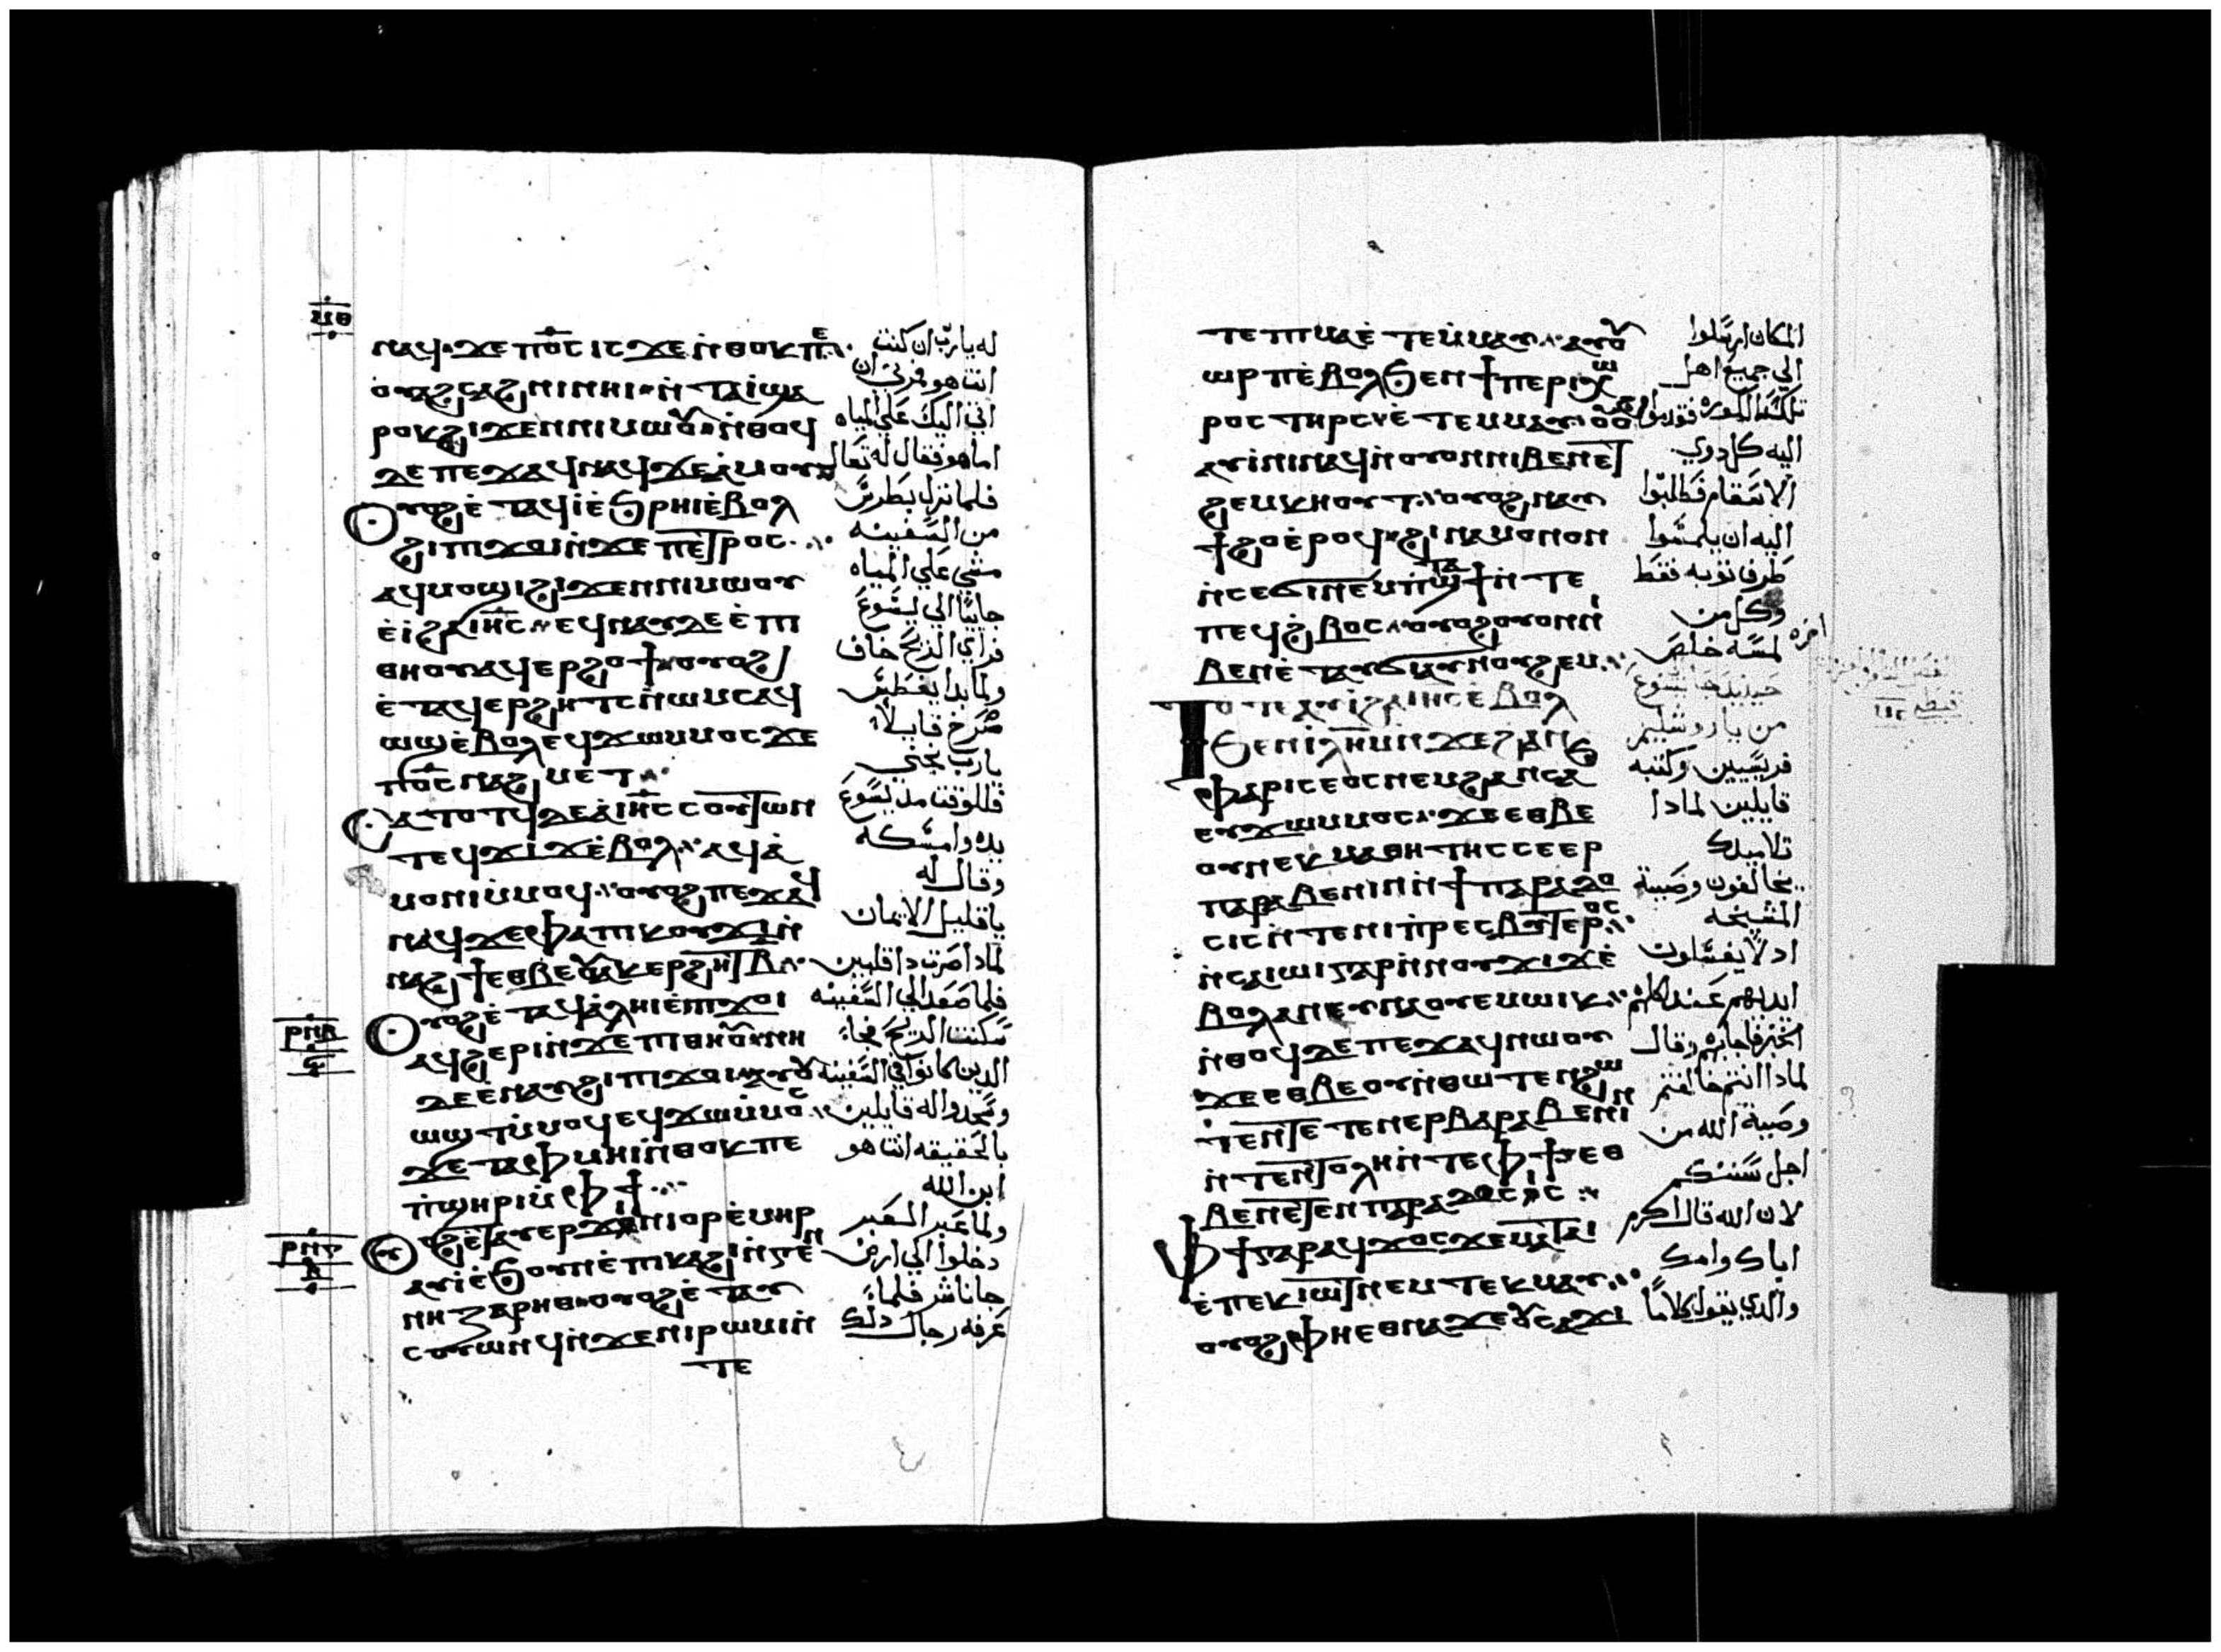 ⲙⲑ
ⲛⲁϥ ϫⲉ ⲡⲟ̅ⲥ̅ ⲓⲥϫⲉ ⲛ̇ⲑⲟⲕ ⲡⲉ
ⲟ̇ⲩⲁϩⲥⲁϩⲛⲓ ⲛⲏⲓ ⲛ̇ⲧⲁⲓ̇ ϣⲁ
ⲣⲟⲕ ϩⲓϫⲉⲛ ⲛⲓⲙⲱⲟⲩ ⲛ̇ⲑⲟϥ
ⲇⲉ ⲡⲉϫⲁϥ ⲛⲁϥ ϫⲉ ⲁ̇ⲙⲟⲩ
ⲟⲩⲟϩ ⲉ̇ⲧⲁϥⲓ̇ ⲉ̇ϧⲣⲏⲓ ⲉ̇ⲃⲟⲗ
ϩⲓ ⲡⲓϫⲟⲓ ⲛ̇ϫⲉ ⲡⲉⲧⲣⲟⲥ
ⲁϥⲙⲟϣⲓ ϩⲓϫⲉⲛ ⲛⲓⲙⲱⲟⲩ
ⲉ̇ⲓ̇ ϩⲁ ⲓⲏ̅ⲥ̅ ⲉϥⲛⲁⲩ ⲇⲉ ⲉ̇ⲡⲓ
ⲑⲏⲟⲩ ⲁϥⲉⲣϩⲟϯ ⲟⲩⲟϩ
ⲉ̇ⲧⲁϥⲉⲣϩⲏⲧⲥ ⲛ̇ⲱⲙⲥ ⲁϥ
ⲱϣ ⲉ̇ⲃⲟⲗ ⲉϥϫⲱ ⲙⲙⲟⲥ ϫⲉ
ⲡⲟ̅ⲥ̅ ⲛⲁϩⲙⲉⲧ
ⲥⲁⲧⲟⲧϥ ⲇⲉ ⲁ̇ ⲓⲏ̅ⲥ̅ ⲥⲟⲩⲧⲱⲛ
ⲧⲉϥϫⲓϫ ⲉ̇ⲃⲟⲗ ⲁϥⲁ̇
ⲙⲟⲛⲓ ⲙ̇ⲙⲟϥ ⲟⲩⲟϩ ⲡⲉϫⲁϥ
ⲛⲁϥ ϫⲉ ⲫⲁ ⲡⲓⲕⲟⲩϫⲓ ⲛ̇
ⲛⲁϩϯ ⲉⲑⲃⲉⲟⲩ ⲁⲕⲉⲣϩⲏⲧ ⲃ̅
ⲟⲩⲟϩ ⲉ̇ⲧⲁϥⲁ̇ⲗⲏⲓ ⲉ̇ⲡⲓϫⲟⲓ
ⲣⲛⲃ
ⲁϥϩⲉⲣⲓ ⲛ̇ϫⲉ ⲡⲓⲑⲏⲟⲩ ⲛⲏ
ⲇⲉ ⲉ̇ⲛⲁⲩ ϩⲓ ⲡⲓϫⲟⲓ ⲁⲩⲟⲩ
ⲱϣⲧ ⲙ̇ⲙⲟϥ ⲉⲩϫⲱ ⲙ̇ⲙⲟⲥ
ϫⲉ ⲧⲁⲫⲙⲏⲓ ⲛ̇ⲑⲟⲕ ⲡⲉ
ⲡ̇ϣⲏⲣⲓ ⲙ̇ⲫϯ
ⲟⲩⲟϩ ⲉ̇ⲧⲁⲩⲉⲣϫⲓⲛⲓⲟⲣ ⲉ̇ⲙⲏⲣ
ⲣⲛⲅ
ⲁⲩⲓ̇ ⲉ̇ϧⲟⲩⲛ ⲉ̇ⲡⲓⲕⲁϩⲓ ⲛ̇ⲅⲉⲛ
ⲛⲏⲍⲁⲣⲏⲑ ⲟⲩⲟϩ ⲉ̇ⲧⲁⲩ
ⲥⲟⲩⲱⲛϥ ⲛ̇ϫⲉ ⲛⲓⲣⲱⲙⲓ ⲛ̇
ⲧⲉ
له يارب ان كنت
انت هو فمرني ان
اتي اليك علي المياه
اما هو فقال له تعال
فلما نزل بطرس
من السفينه
مشي علي المياه
جاييًا الي يسوع
فراي الريح خاف
ولما بدا يغطس
صرخ قايلاً
يارب نجني
فللوقت مد يسوع
يده وامسكه
وقال له
يا قليل الايمان
لماذا صرت ذا قلبين
فلما صعد الي السفينه
سكنت الريح فجاءَ
الذين كانوا في السفينه
وسجدوا له قايلين
بالحقيقه انت هو
ابن الله
ولما عبر العبر
دخلوا الي ارض
جاناشر فلما
عرفه رجال ذلك
ⲧⲉ ⲡⲓⲙⲁ ⲉ̇ⲧⲉⲙ̇ⲙⲁⲩ ⲁⲩⲟⲩ
ⲱⲣⲡ ⲉ̇ⲃⲟⲗ ϧⲉⲛ ϯⲡⲉⲣⲓⲭⲱ
ⲣⲟⲥ ⲧⲏⲣⲥ ⲉ̇ⲧⲉⲙⲙⲁⲩ ⲟⲩⲟϩ
ⲁⲩⲓ̇ⲛⲓ ⲛⲁϥ ⲛ̇ⲟⲩⲟⲛ ⲛⲓⲃⲉⲛ ⲉⲧ
ϩⲉⲙⲕⲏⲟⲩⲧ ⲟⲩⲟϩ ⲛⲁⲩ
ϯϩⲟ ⲉ̇ⲣⲟϥ ϩⲓⲛⲁ ⲙⲟⲛⲟⲛ
ⲛ̇ⲥⲉϭⲓ ⲛⲉⲙ ⲡ̇ϣⲧⲁϯ ⲛ̇ⲧⲉ
ⲡⲉϥϩⲃⲟⲥ ⲟⲩⲟϩ ⲟⲩⲟⲛ ⲛⲓ
ⲃⲉⲛ ⲉ̇ⲧⲁⲩϭⲓ ⲁⲩⲛⲟϩⲉⲙ
ⲧⲟⲧⲉ ⲁⲩⲓ̇ ϩⲁ ⲓⲏⲥ ⲉ̇ⲃⲟⲗ
ϧⲉⲛ ⲓⲗⲏⲙ ⲛ̇ϫⲉ ϩⲁⲛ
ⲫⲁⲣⲓⲥⲉⲟⲥ ⲛⲉⲙ ϩⲁⲛⲥⲁϧ
ⲉⲩϫⲱ ⲙⲙⲟⲥ ϫⲉ ⲉⲑⲃⲉ
ⲟⲩ ⲛⲉⲕⲙⲁⲑⲏⲧⲏⲥ ⲥⲉⲉⲣ
ⲡⲁⲣⲁⲃⲉⲛⲓⲛ ⲛ̇ϯⲡⲁⲣⲁⲇⲟ
ⲥⲓⲥ ⲛ̇ⲧⲉ ⲛⲓⲡ̇ⲣⲉⲥⲃⲩⲧⲉⲣⲟⲥ
ⲛ̇ⲥⲉⲓⲱⲓ ⲅⲁⲣ ⲛ̇ⲛⲟⲩϫⲓϫ ⲉ̇
ⲃⲟⲗ ⲁⲛ ⲉⲩⲛⲁⲟⲩⲉⲙ ⲱⲓⲕ
ⲛ̇ⲑⲟϥ ⲇⲉ ⲡⲉϫⲁϥ ⲛⲱⲟⲩ
ϫⲉ ⲉⲑⲃⲉⲟⲩ ⲛ̇ⲑⲱⲧⲉⲛ ϩⲱ
ⲧⲉⲛ ⲧⲉⲧⲉⲛⲉⲣⲡⲁⲣⲁⲃⲉⲛⲓⲛ
ⲛ̇ϯⲉⲛⲧⲟⲗⲏ ⲛ̇ⲧⲉ ⲫϯ ⲉⲑ
ⲃⲉ ⲛⲉⲧⲉⲛⲡⲁⲣⲁⲇⲟⲥⲓⲥ
ⲫϯ ⲅⲁⲣ ⲁϥϫⲟⲥ ϫⲉ ⲙⲁⲧⲁⲓⲉ̇
ⲡⲉⲕⲓⲱⲧ ⲛⲉⲙ ⲧⲉⲕⲙⲁⲩ
ⲟⲩⲟϩ ⲫⲏ ⲉⲑⲛⲁϫⲉ ⲟⲩⲥⲁϫⲓ
المكان ارسلوا
الي جميع اهل
تلك الكوره فقدموا
اليه كل ذوي
الاسقام فطلبوا
اليه ان يلمسوا
طرف ثوبه فقط
وكل من
لمسه خلص
حينيذ جا يسوع
من ياروشليم
فريسيين وكتبه
قايلين لماذا
تلاميذك
يخالفون وصية
المشيخه
اذ لا يغسلون
ايديهم عند اكلهم
الخبز فاجابهم وقال
لماذا انتم خالفتم
وصية الله من
اجل سننكم
لان الله قال اكرم
اباك وامك
والذي يقول كلامًا